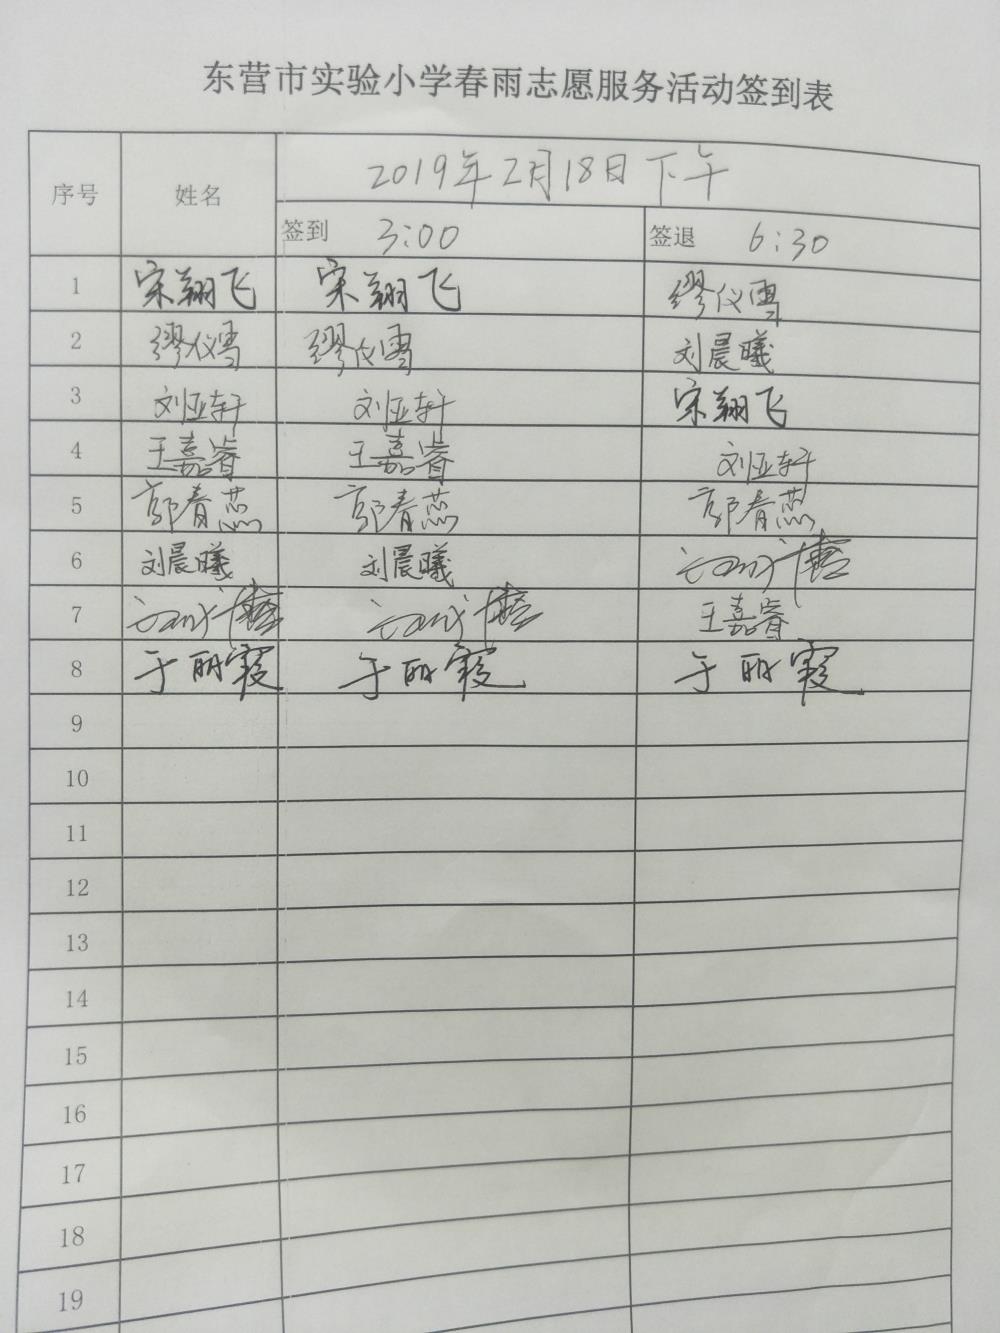 东营市实验小学春雨志愿服务活动签到表
序号 姓名 2019年2月18日下午
签到 3:00 签退 6:30
1 宋翔飞 宋翔飞 缪仪雪
2 缪仪雪 缪仪雪 刘晨曦
3 刘亚轩 刘亚轩 宋翔飞
4 王嘉睿 王嘉睿 刘亚轩
5 郭春燕 郭春燕 郭春燕
6 刘晨曦 刘晨曦
7 王嘉睿
8 于丽霞 于丽霞 于丽霞
9
10
11
12
13
14
15
16
17
18
19